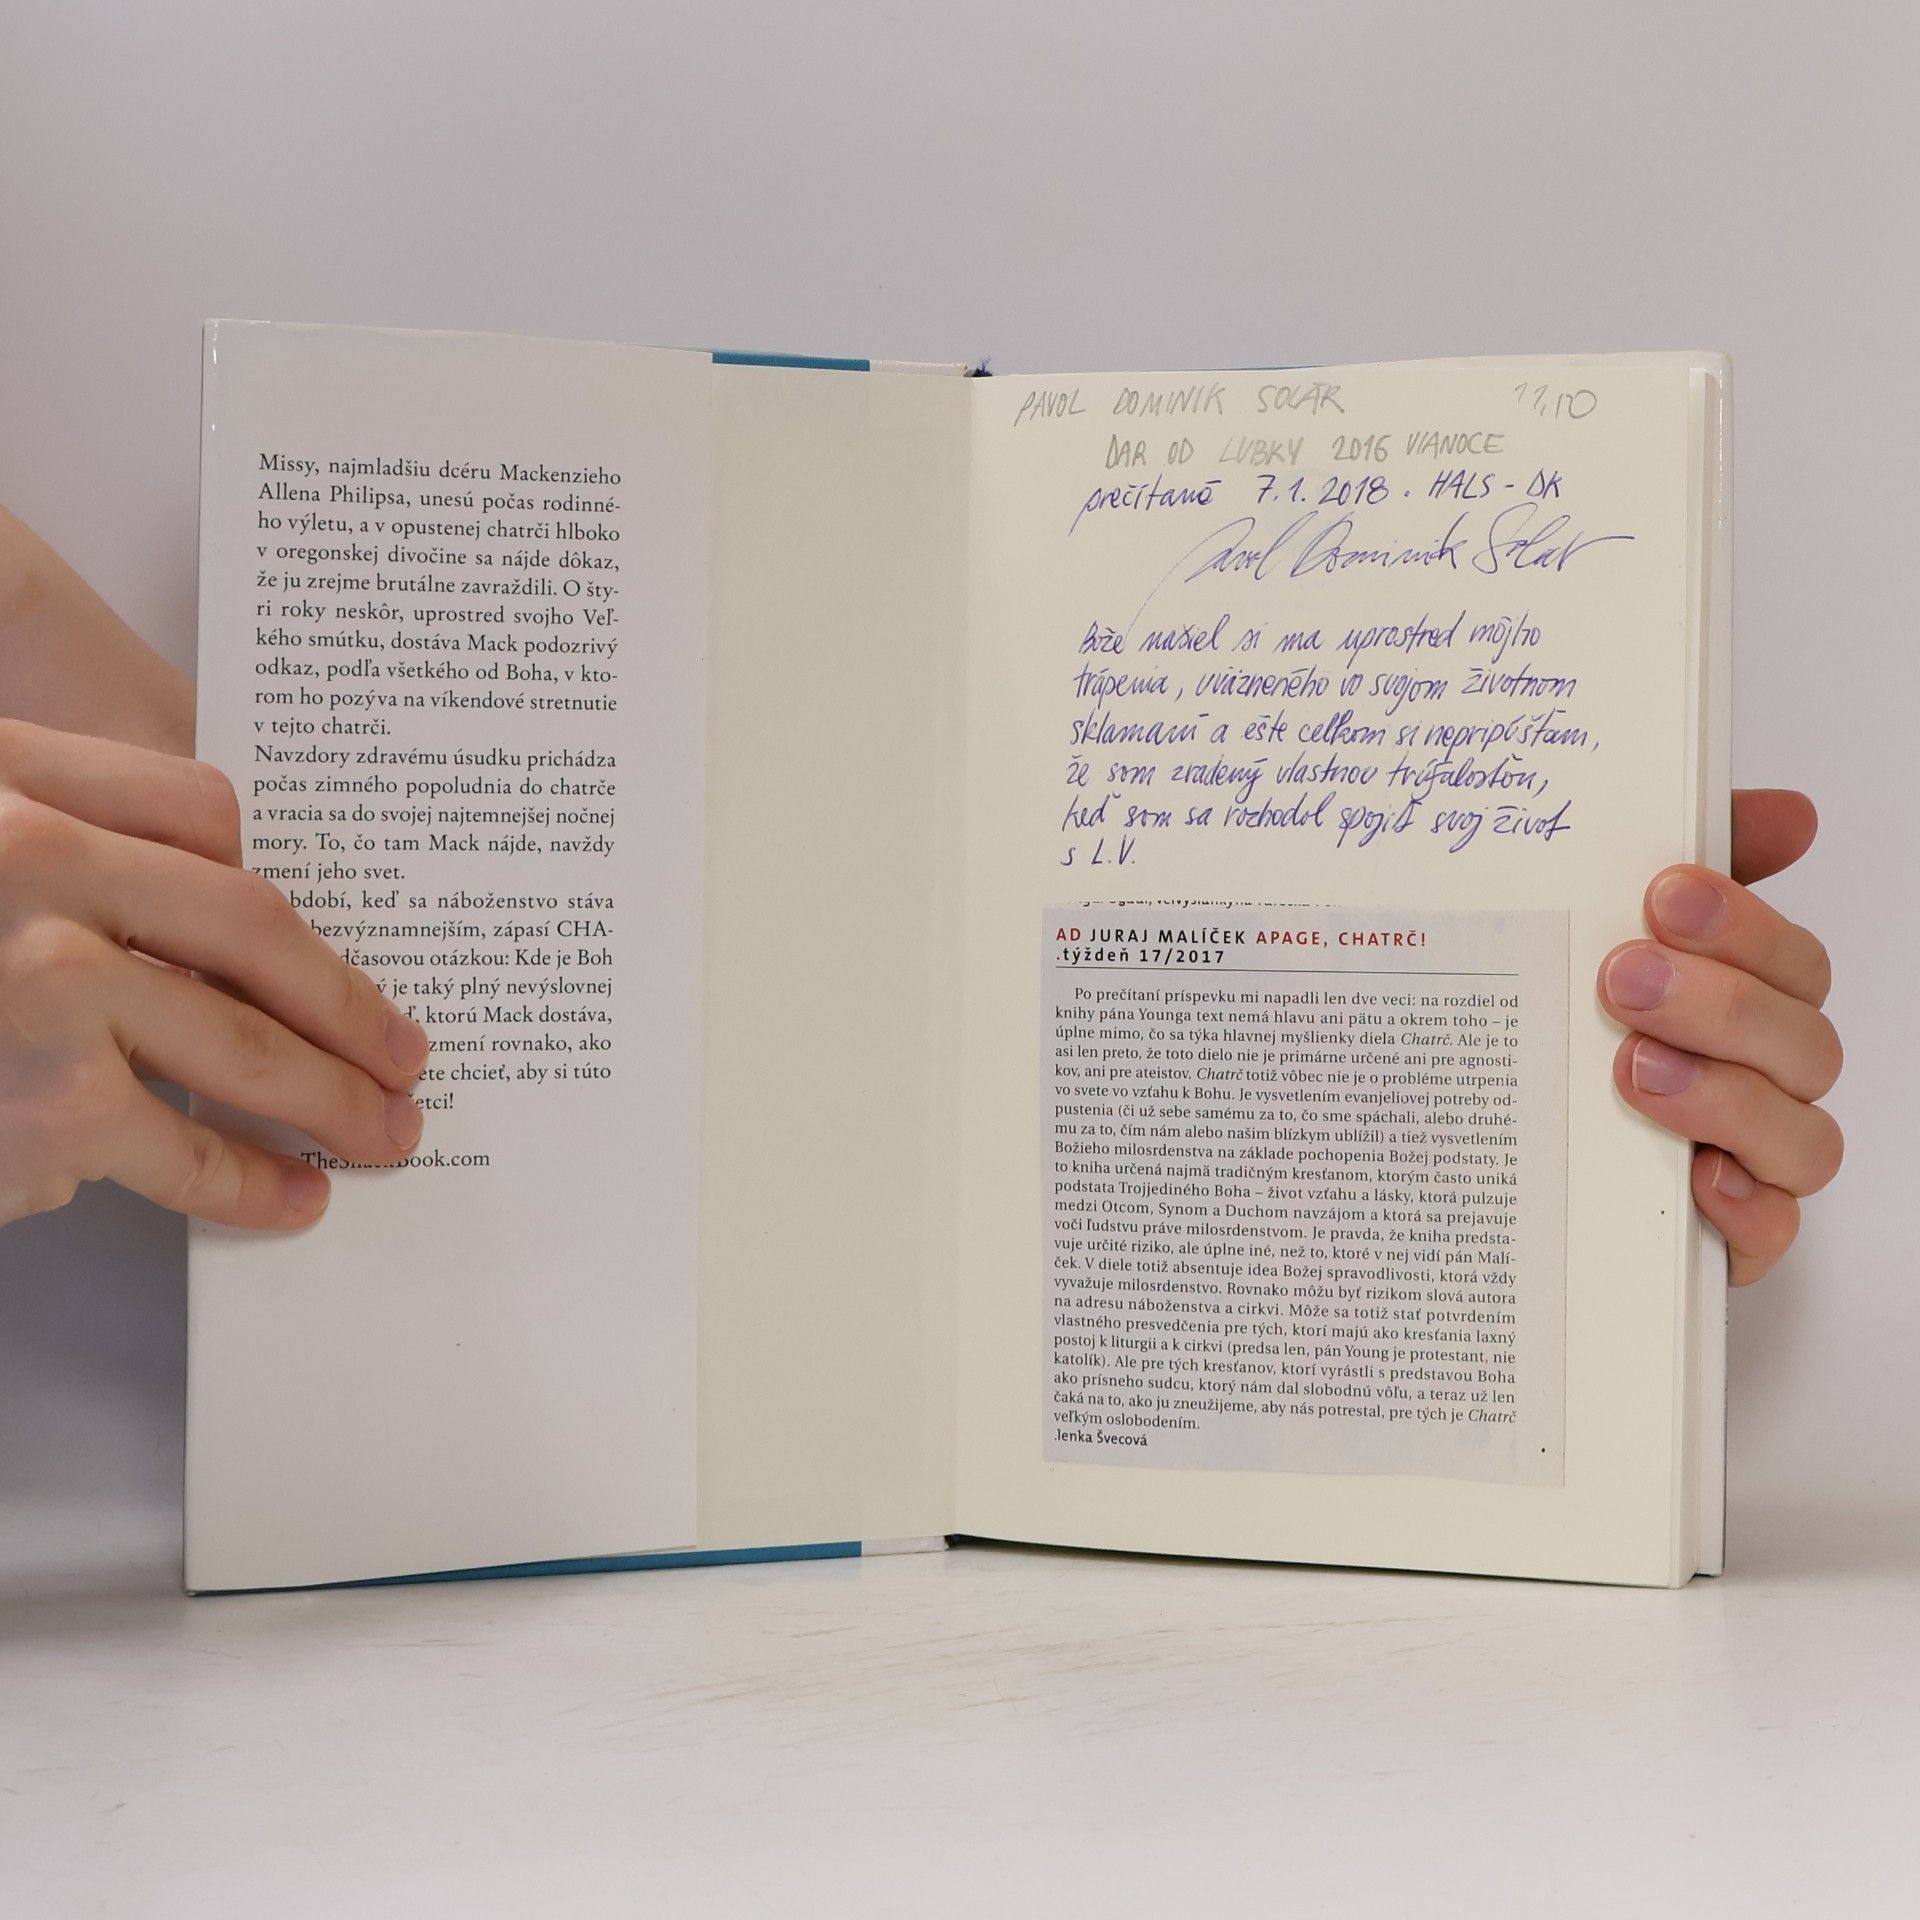 Missy, najmladšiu dcéru Mackenzieho
Allena Philipsa, unesú počas rodinné-
ho výletu, a v opustenej chatrči hlboko
v oregonskej divočine sa nájde dôkaz,
že ju zrejme brutálne zavraždili. O šty-
ri roky neskôr, uprostred svojho Veľ-
kého smútku, dostáva Mack podozrivý
odkaz, podľa všetkého od Boha, v kto-
rom ho pozýva na víkendové stretnutie
v tejto chatrči.
Navzdory zdravému úsudku prichádza
počas zimného popoludnia do chatrče
a vracia sa do svojej najtemnejšej nočnej
mory. To, čo tam Mack nájde, navždy
zmení jeho svet.
keď sa náboženstvo stáva
bezvýznamnejším, zápasí CHA-
otázkou: Kde je Boh
je taký plný nevýslovnej
ktorú Mack dostáva,
zmení rovnako, ako
chcieť, aby si túto
PAVOL DOMINIK SOLÁR 11,10
DAR OD LUBKY 2016 VIANOCE
prečítané 7.1.2018. HALS - DK
Pavol Dominik Solar
Bože našiel si ma uprostred môjho
trápenia, uväzneného vo svojom životnom
sklamaní a ešte celkom si nepripúšťam,
že som zradený vlastnou trúfalosťou,
keď som sa rozhodol spojiť svoj život
s L.V.
AD JURAJ MALÍČEK APAGE, CHATRČ!
.týždeň 17/2017
Po prečítaní príspevku mi napadli len dve veci: na rozdiel od
knihy pána Younga text nemá hlavu ani pätu a okrem toho – je
úplne mimo, čo sa týka hlavnej myšlienky diela Chatrč. Ale je to
asi len preto, že toto dielo nie je primárne určené ani pre agnosti-
kov, ani pre ateistov. Chatrč totiž vôbec nie je o probléme utrpenia
vo svete vo vzťahu k Bohu. Je vysvetlením evanjeliovej potreby od-
pustenia (či už sebe samému za to, čo sme spáchali, alebo druhé-
mu za to, čím nám alebo našim blízkym ublížil) a tiež vysvetlením
Božieho milosrdenstva na základe pochopenia Božej podstaty. Je
to kniha určená najmä tradičným kresťanom, ktorým často uniká
podstata Trojjediného Boha – život vzťahu a lásky, ktorá pulzuje
medzi Otcom, Synom a Duchom navzájom a ktorá sa prejavuje
voči ľudstvu práve milosrdenstvom. Je pravda, že kniha predsta-
vuje určité riziko, ale úplne iné, než to, ktoré v nej vidí pán Malí-
ček. V diele totiž absentuje idea Božej spravodlivosti, ktorá vždy
vyvažuje milosrdenstvo. Rovnako môžu byť rizikom slová autora
na adresu náboženstva a cirkvi. Môže sa totiž stať potvrdením
vlastného presvedčenia pre tých, ktorí majú ako kresťania laxný
postoj k liturgii a k cirkvi (predsa len, pán Young je protestant, nie
katolík). Ale pre tých kresťanov, ktorí vyrástli s predstavou Boha
ako prísneho sudcu, ktorý nám dal slobodnú vôľu, a teraz už len
čaká na to, ako ju zneužijeme, aby nás potrestal, pre tých je Chatrč
veľkým oslobodením.
.lenka Švecová